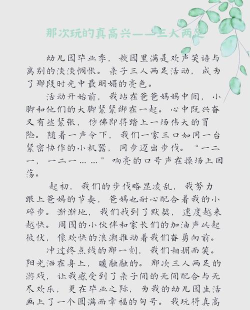 那次玩的真高兴——三人两足
幼儿园毕业季，校园里满是欢声笑语与
离别的淡淡惆怅。亲子三人两足活动，成为
了那段时光中最明媚的亮色。
活动开始前，我站在爸爸妈妈中间，小
脚和他们的大脚紧紧绑在一起。心中既兴奋
又有些紧张，仿佛即将踏上一场伟大的冒
险。随着一声令下，我们一家三口如同一台
紧密协作的小机器，同步迈出步伐。“一二
一，一二一……”响亮的口号声在操场上回
荡。
起初，我们的步伐略显凌乱，我努力
跟上爸妈的节奏，爸妈也耐心配合着我的小
碎步。渐渐地，我们找到了默契，速度越来
越快。周围的小伙伴和家长们的加油声此起
彼伏，像欢快的浪潮推动着我们奋勇向前。
冲过终点线的那一刻，我们相拥而笑，
阳光洒在身上，暖融融的。那次三人两足的
游戏，让我感受到了亲子间的无间配合与无
尽欢乐，更在毕业之际，为我的幼儿园生活
画上了一个圆满而幸福的句号。我玩得真高